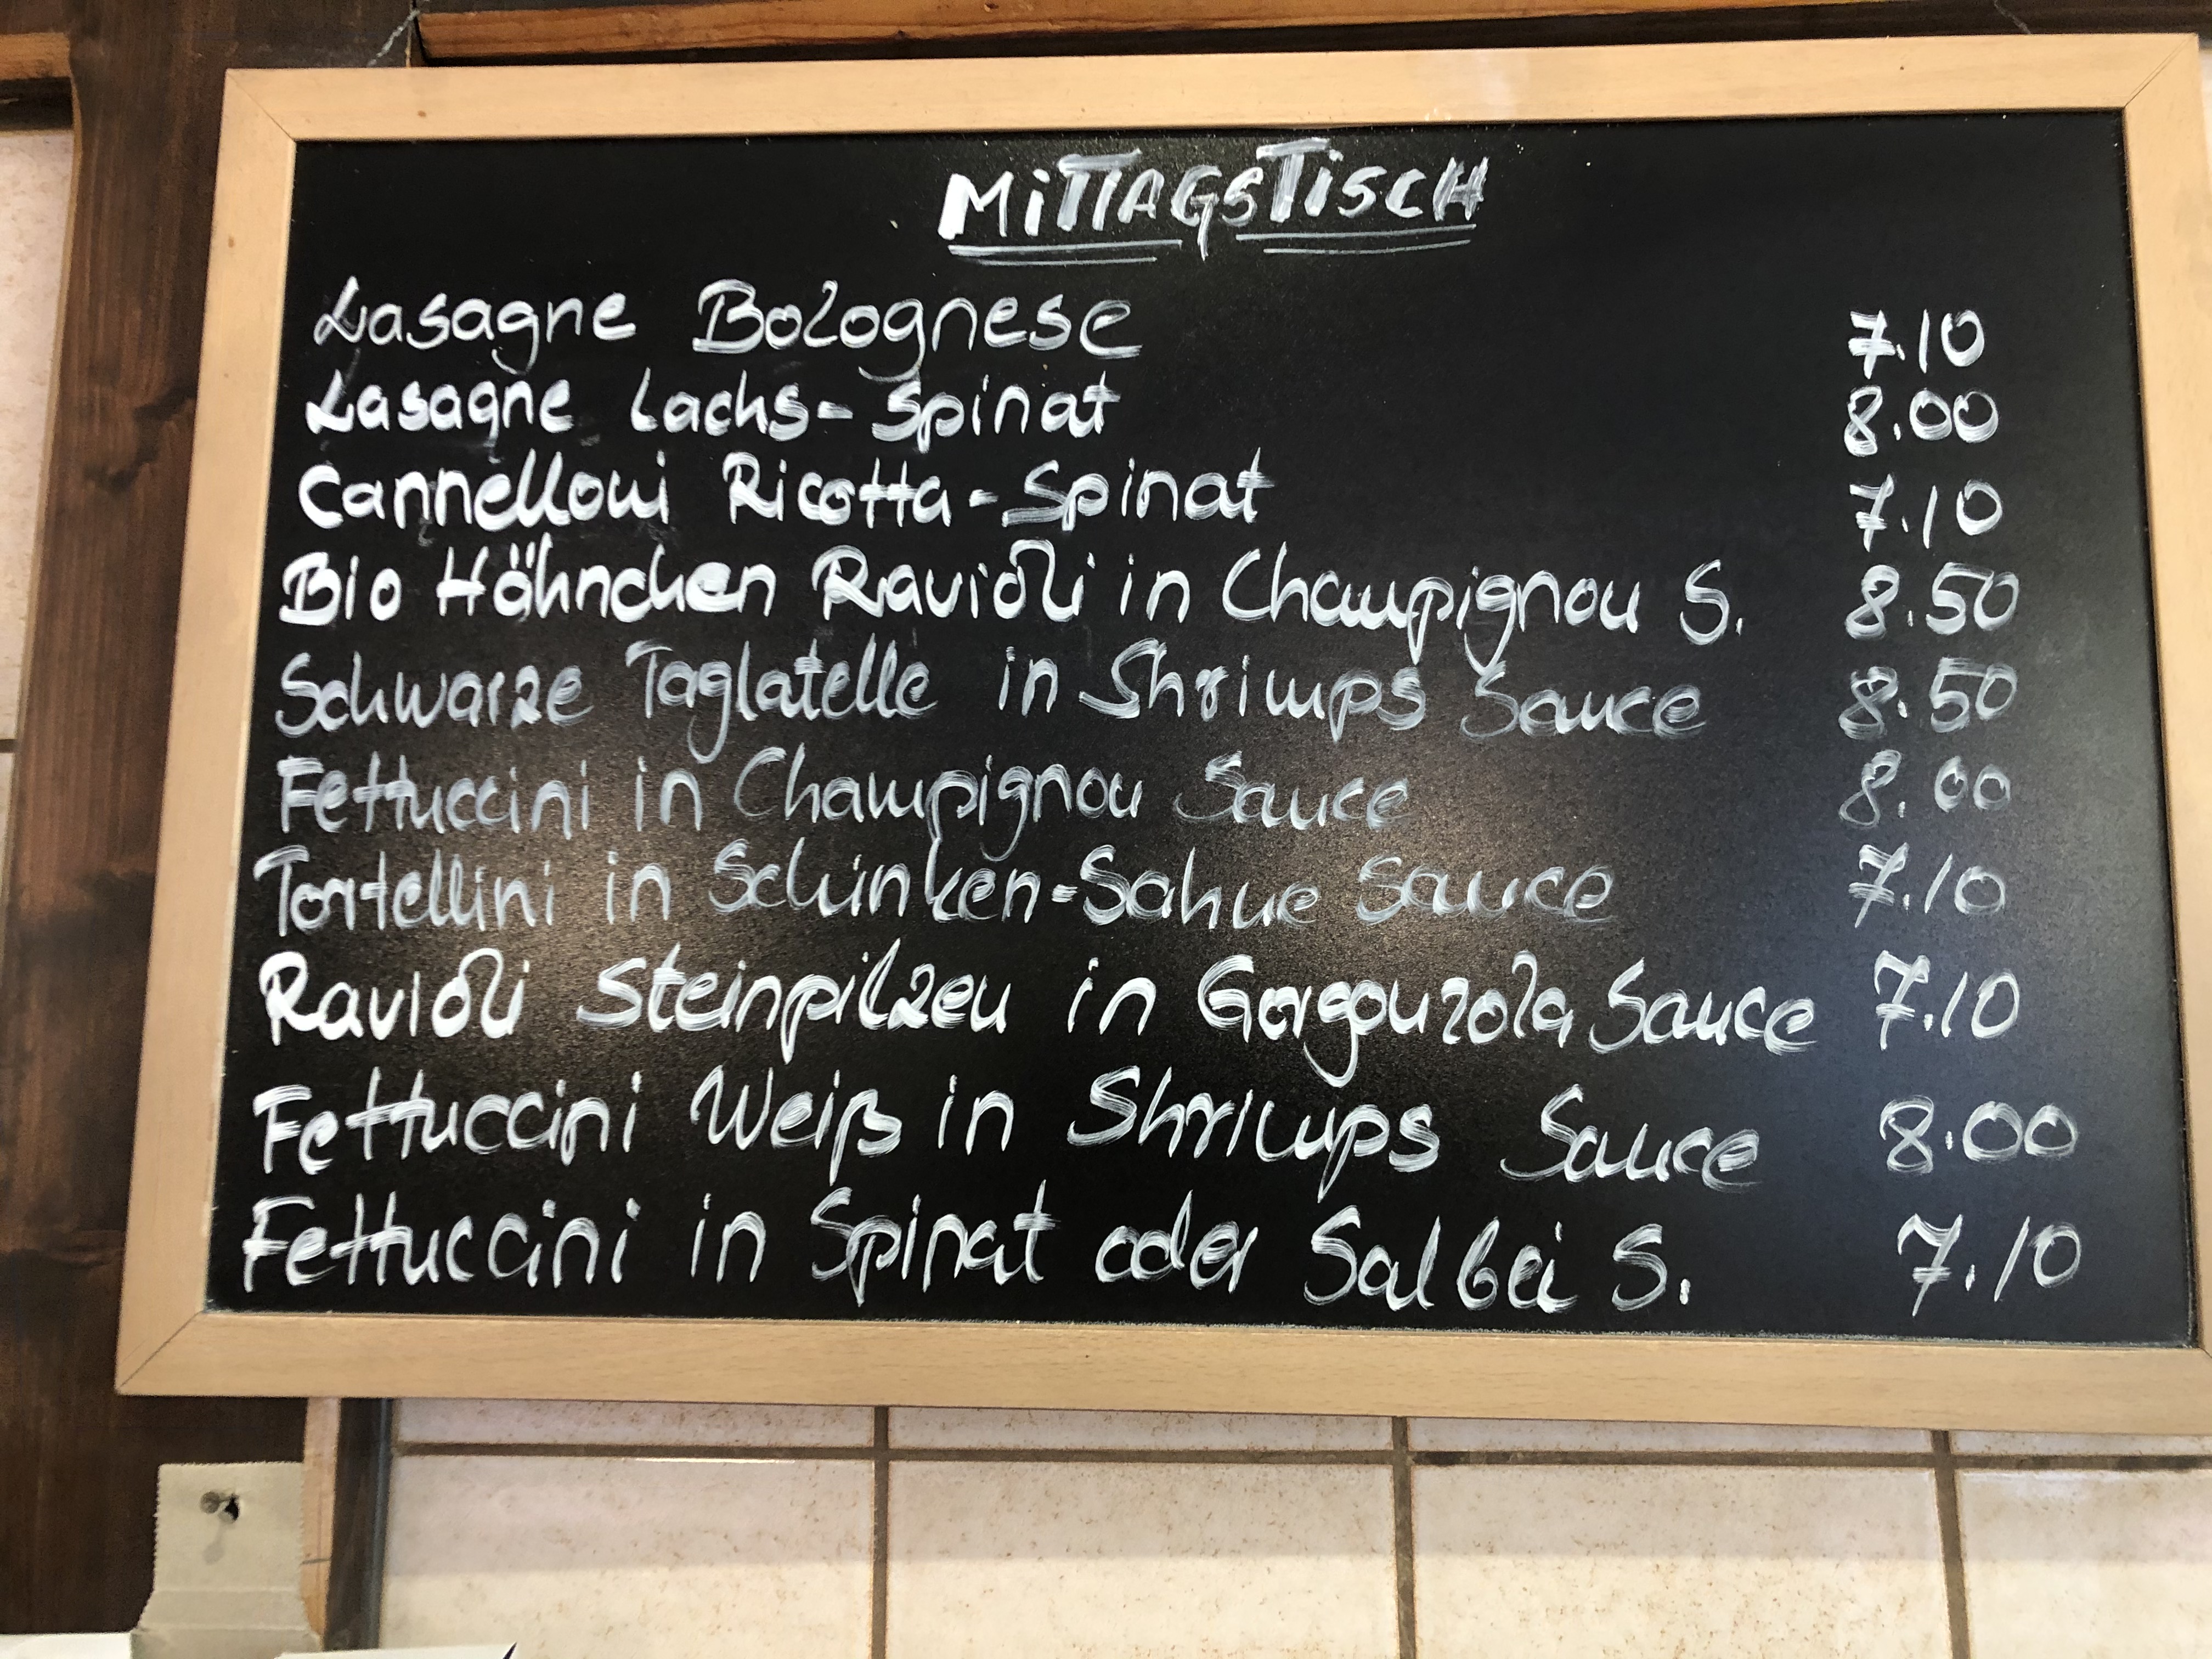 MiTTAGSTiSCH
Lasagne Bolognese 7.10
Lasagne Lachs-Spinat 8.00
Cannelloni Ricotta-Spinat 7.10
Bio Hähnchen Ravioli in Champignon S. 8.50
Schwarze Taglatelle in Shrimps Sauce 8.50
Fettuccini in Champignon Sauce 8.00
Tortellini in Schinken-Sahne Sauce 7.10
Ravioli Steinpilzen in Gorgonzola Sauce 7.10
Fettuccini Weiß in Shrimps Sauce 8.00
Fettuccini in Spinat oder Salbei S. 7.10